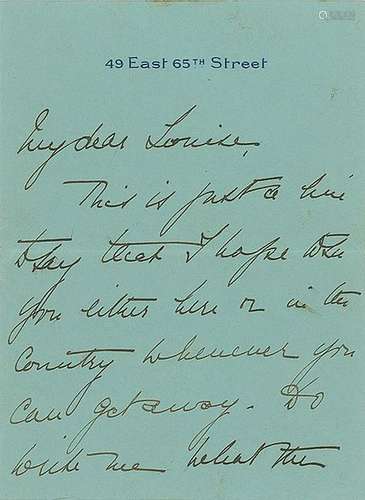 49 East 65TH Street
My dear Louise,
This is just a line
to say that I hope to see
you either here or in the
Country whenever you
can get away. Do
write me what the